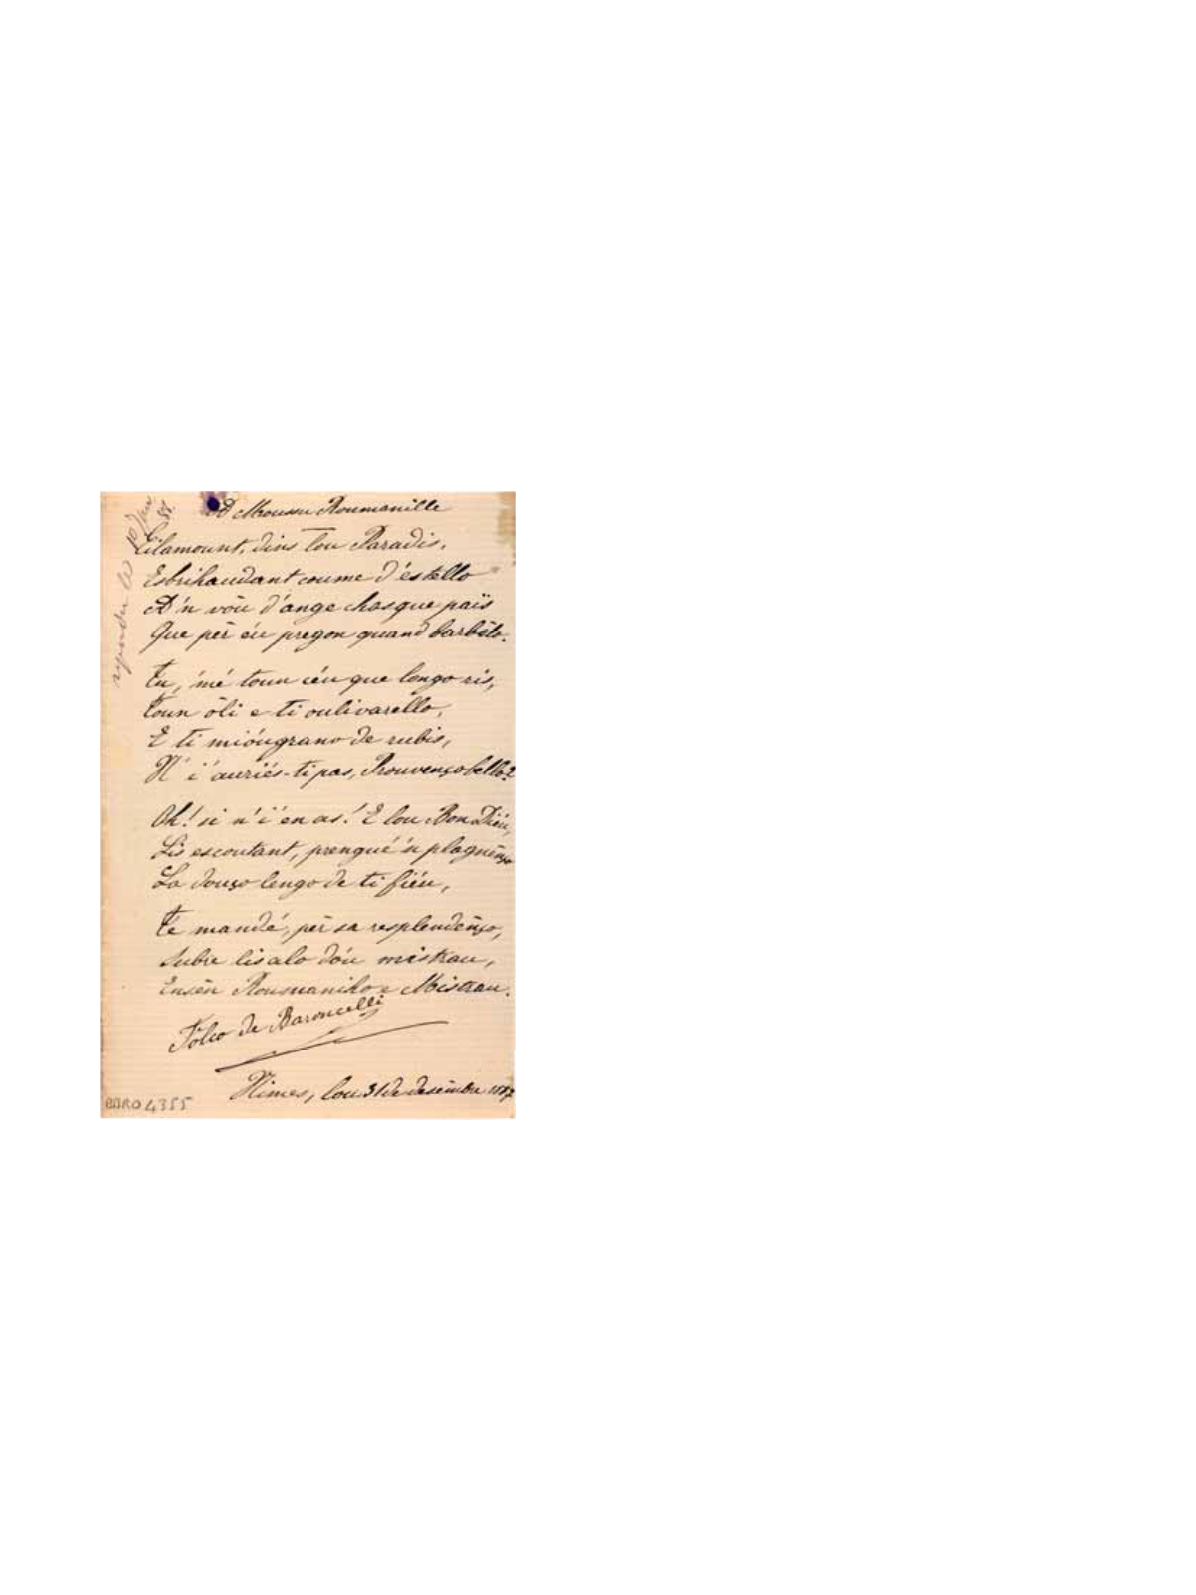 A Moussu Roumanille
Eilamount, dins lou Paradis,
Esbrihaudant coume d'estello
A'n vòu d'ange chasque païs
Que pèr éu pregon quand barbèlo.
Tu, 'mé toun cèu que longo ris,
Toun òli e ti oulivarello,
E ti mióugrano de rubis,
N' i' auriés-ti pas, Prouvenço bello?
Oh! si n' i' en as! E lou Bon Diéu,
Lis escoutant, prengué'n plagnènço
La douço lengo de ti fiéu,
Te mandè, pèr sa resplendènço,
Subre lis alo dóu mistrau,
Ensèn Roumaniho e Mistrau.
Folco de Baroncelli
Nimes, lou 31 de desèmbre 1887
le 10 Janv 88.
BBRO 4355